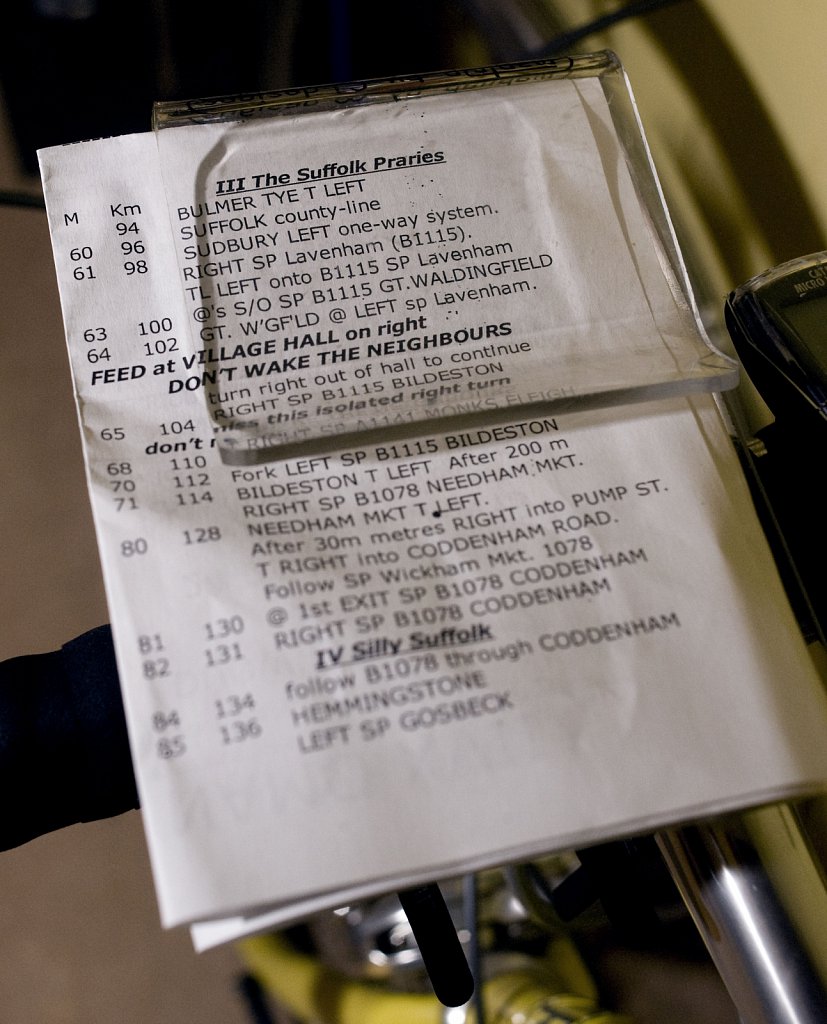 III The Suffolk Praries
M Km BULMER TYE T LEFT
94 SUFFOLK county-line
60 96 SUDBURY LEFT one-way system.
61 98 RIGHT SP Lavenham (B1115).
TL LEFT onto B1115 SP Lavenham
@'s S/O SP B1115 GT.WALDINGFIELD
63 100 GT. W'GF'LD @ LEFT sp Lavenham.
64 102
FEED at VILLAGE HALL on right
DON'T WAKE THE NEIGHBOURS
turn right out of hall to continue
65 104 RIGHT SP B1115 BILDESTON
don't miss this isolated right turn
RIGHT SP A1141 MONKS ELEIGH
68 110 Fork LEFT SP B1115 BILDESTON
70 112 BILDESTON T LEFT After 200 m
71 114 RIGHT SP B1078 NEEDHAM MKT.
80 128 NEEDHAM MKT T LEFT.
After 30m metres RIGHT into PUMP ST.
T RIGHT into CODDENHAM ROAD.
Follow SP Wickham Mkt. 1078
@ 1st EXIT SP B1078 CODDENHAM
81 130 RIGHT SP B1078 CODDENHAM
82 131 IV Silly Suffolk
follow B1078 through CODDENHAM
84 134 HEMMINGSTONE
85 136 LEFT SP GOSBECK
CAT
MICRO